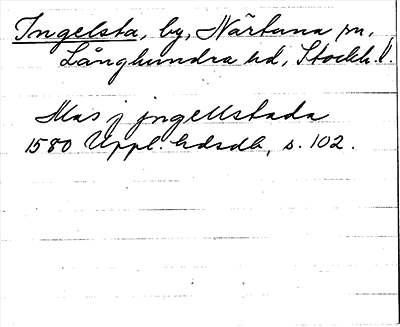 Ingelsta, by, Närtuna sn,
Långhundra hd, Stockh. l.
Mas j jngellstada
1580 Uppl. hdsdb, s. 102.